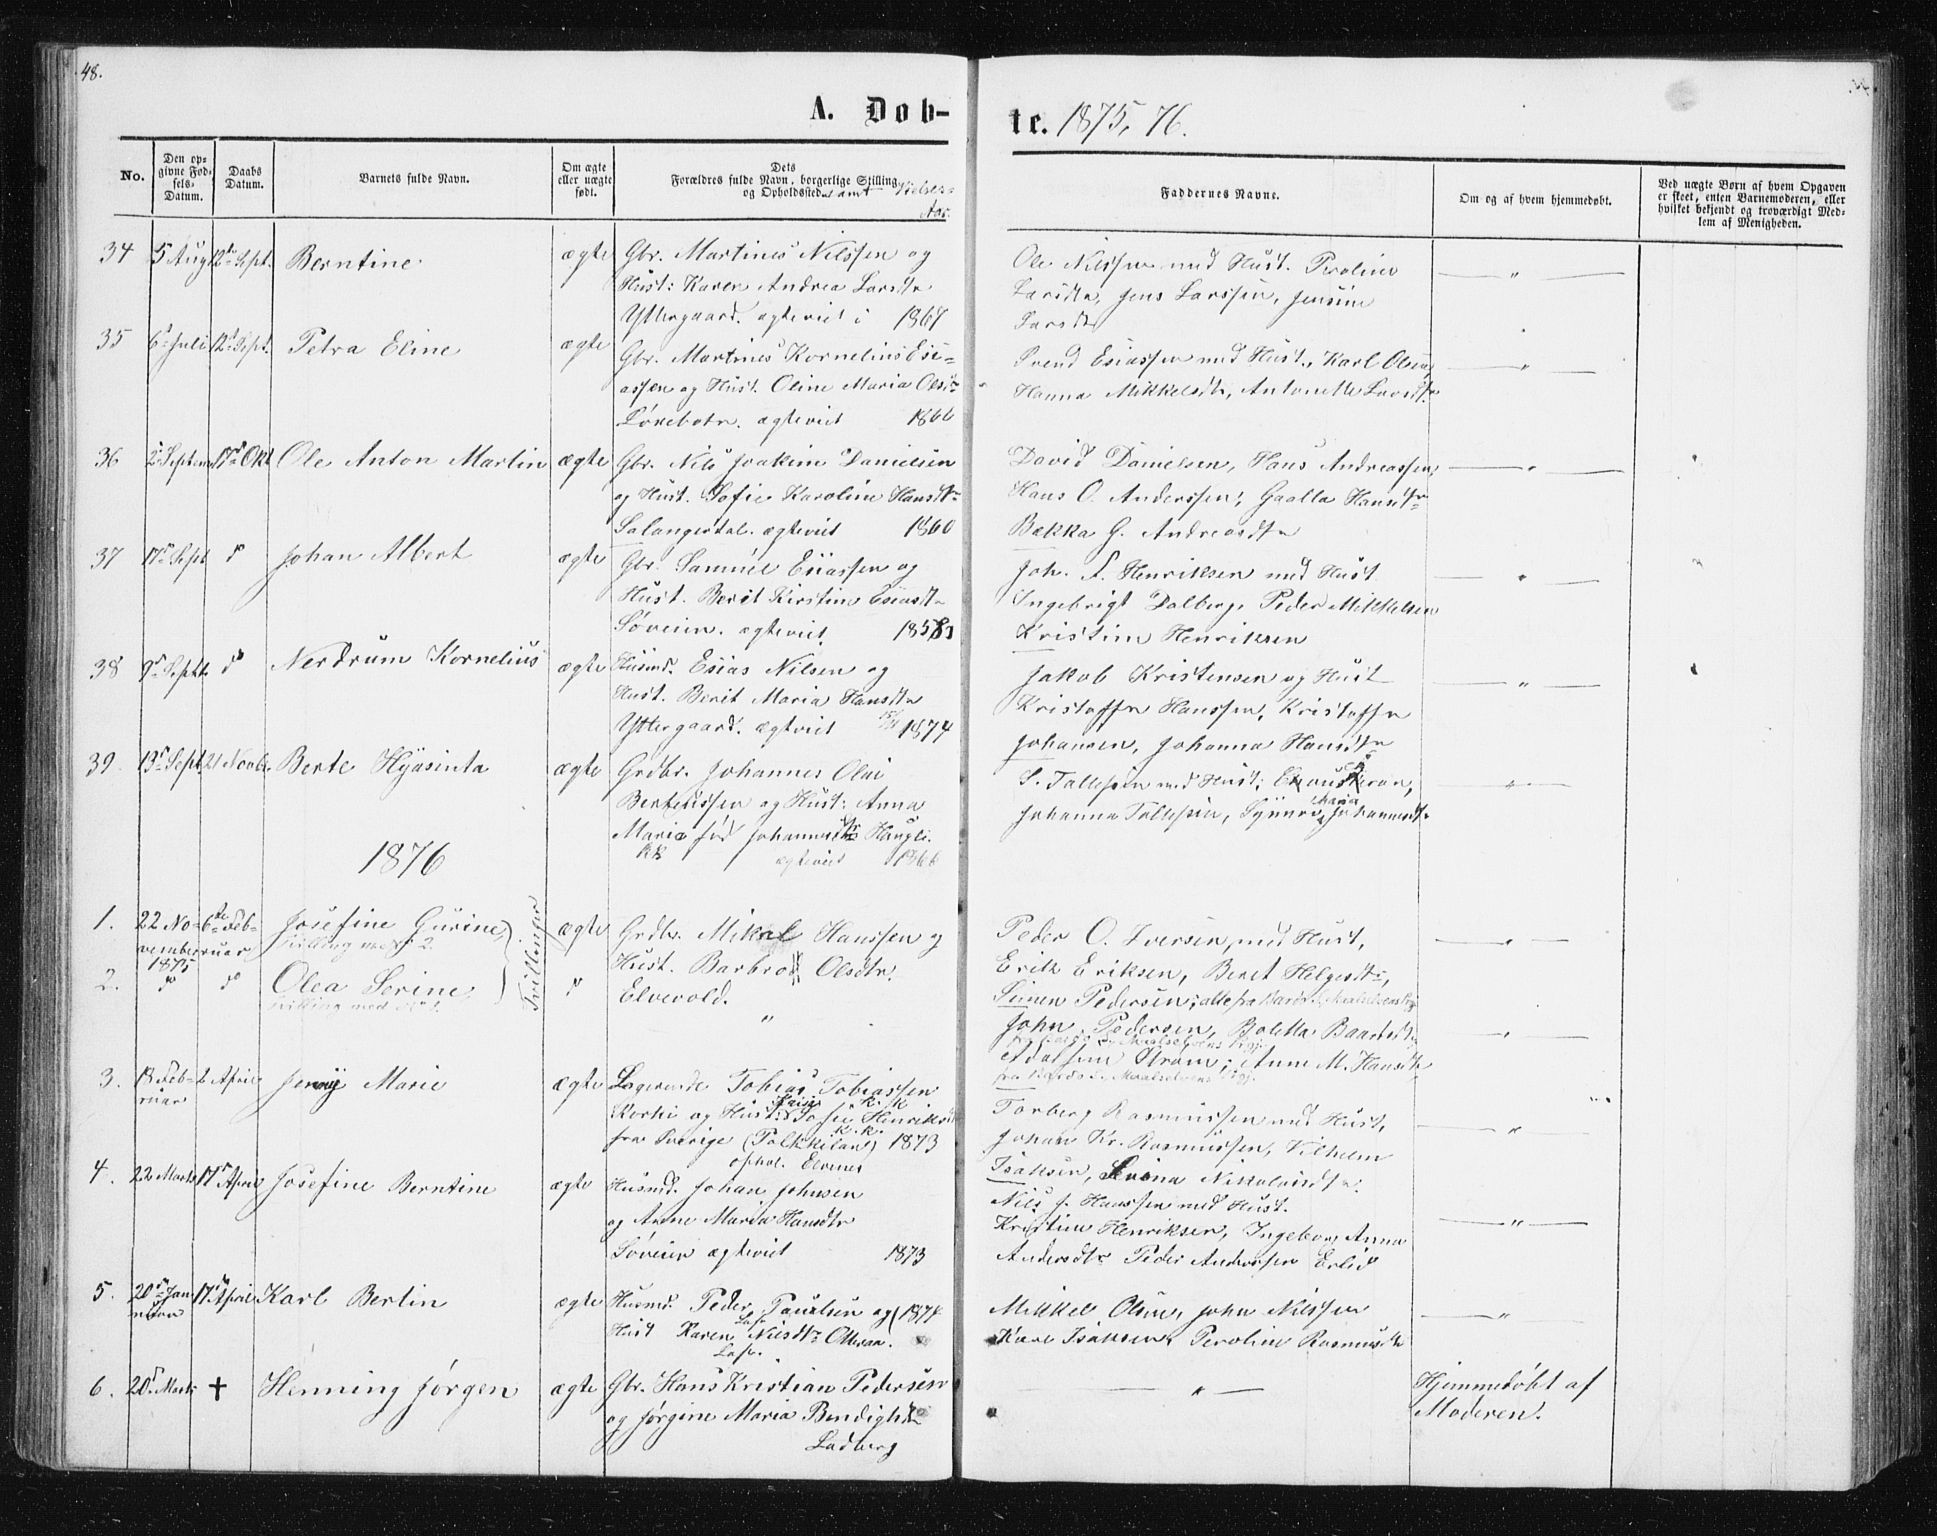 48.
A. Døb-
te. 1875, 76.
No.
Den op-
givne Fød-
sels-
Datum.
Daabs
Datum.
Barnets fulde Navn.
Om ægte
eller uægte
født.
Dets
Forældres fulde Navn, borgerlige Stilling
og Opholdssted samt Vielses-
Aar.
Faddernes Navne.
Om og af hvem hjemmedøbt.
Ved uægte Børn af hvem Opgaven
er skeet, enten Barnemoderen, eller
hvilket bekjendt og troværdigt Med-
lem af Menigheden.
34 5 Aug 12te Sept. Berntine ægte Gbr. Martines Nilssen og
Hust: Karen Andrea Larsdtr
Yttergaard. ægteviet i 1867
Ole Nilssen med Hust. Peroline
Larsdtr, Jens Larssen, Jensine
Larsdtr
35 6 Juli 12 Sept. Petra Eline ægte Gbr. Martines Kornelius Esi-
assen og Hust. Oline Maria Olsdtr
ægteviet 1866
Trend Esiassen med Hust., Karl Olsen,
Hanna Mikkelsdtr, Antonette Larsdtr
36 2 Septem 17 Okt Ole Anton Martin ægte Gbr. Nils Joakim Danielsen
og Hust. Sofie Karoline Hansdtr
Salangerdal. ægteviet 1860
David Danielsen, Hans Andreassen,
Hans O. Anderssen, Gaalla Hansdtr
Bækka G. Andreasdtr
37 17 Sept do Johan Albert ægte Gbr. Samuel Esiassen og
Hust. Berit Kirstine Esiasdtr
Søveien. ægteviet
Joh. A. Henriksen med Hust
Ingebrigt Dalberg, Peder Mikkelsen
Kristine Henriksen
38 9 Septt. do Nerdrum Kornelius ægte Husmd. Esias Nilsen og
Hust. Berit Maria Hansdtr
Yttergaard. ægteviet 1874
Jakob Kristensen og Hust
Kristoffer Hanssen, Kristoffer
Johansen, Johanna Hansdtr
39. 13 Sept. 21 Novbr. Berte Hyasinta ægte Grdbr. Johannes Olai
Berteussen og Hust: Anna
Maria fød Johannesdtr Haugli.
ægteviet 1866
S. Tollefsen med Hust;
Johanna Tollefsen, Synnøv Maria Johannesdtr
1876
1. 22 No- 6te Feb- Josefine Gurine, ægte Grdbr. Mikal Hanssen og
vember ruar Tvilling med No 2.
1875
Hust. Barbro Olsdtr.
Tvillinger
2. do do Olea Serine, do Elvevold.
Tvilling med No 1.
Peder O. Iversen, med Hust,
Erik Eriksen, Beret Helgesdtr,
Simen Pedersen; alle fra Bardo S. Maalselvens Prgj.
John Pedersen, Boletta Baardsdtr
fra Bardo S. Maalselvens Prgj.
Adalsem Strøm; Anne M. Hansdtr
fra Bardo S. Maalselvens Prgj.
3. 13 Feb- 2 April Jenny Marie ægte Logerende Tobias Tobiassen
ruar
Korki og Hust: Kaisa Sofie Henriksdtr
fra Sverige 1873
ophol. Elvenes
Torberg Rasmussen med Hust,
Johan Kr. Rasmussen, Vilhelm
Isaksen, Nikolaisdtr.
4. 22 Marts 17 April Josefine Berntine ægte Husmd. Johan Johnsen
og Anne Maria Hansdtr
Søveien ægteviet 1873
Nils J. Hanssen med Hust.
Kristine Henriksen, Ingeborg Anna
Andersdtr Peder Anderssen
5. 20 Jan- 17 April Karl Bertin ægte Husmd. Peder Paulsen og 1874
nuar
Hust Karen Nilsdtr
Lap.
Mikkel Olsen, John Nilssen
Kare Isaksen, Peroline Rasmusdtr
6. 20 Marts ✝ Henning Jørgen ægte Gbr. Hans Kristian Pedersen
og Jørgine Maria
Ladberg
Hjemmedøbt af
Moderen.